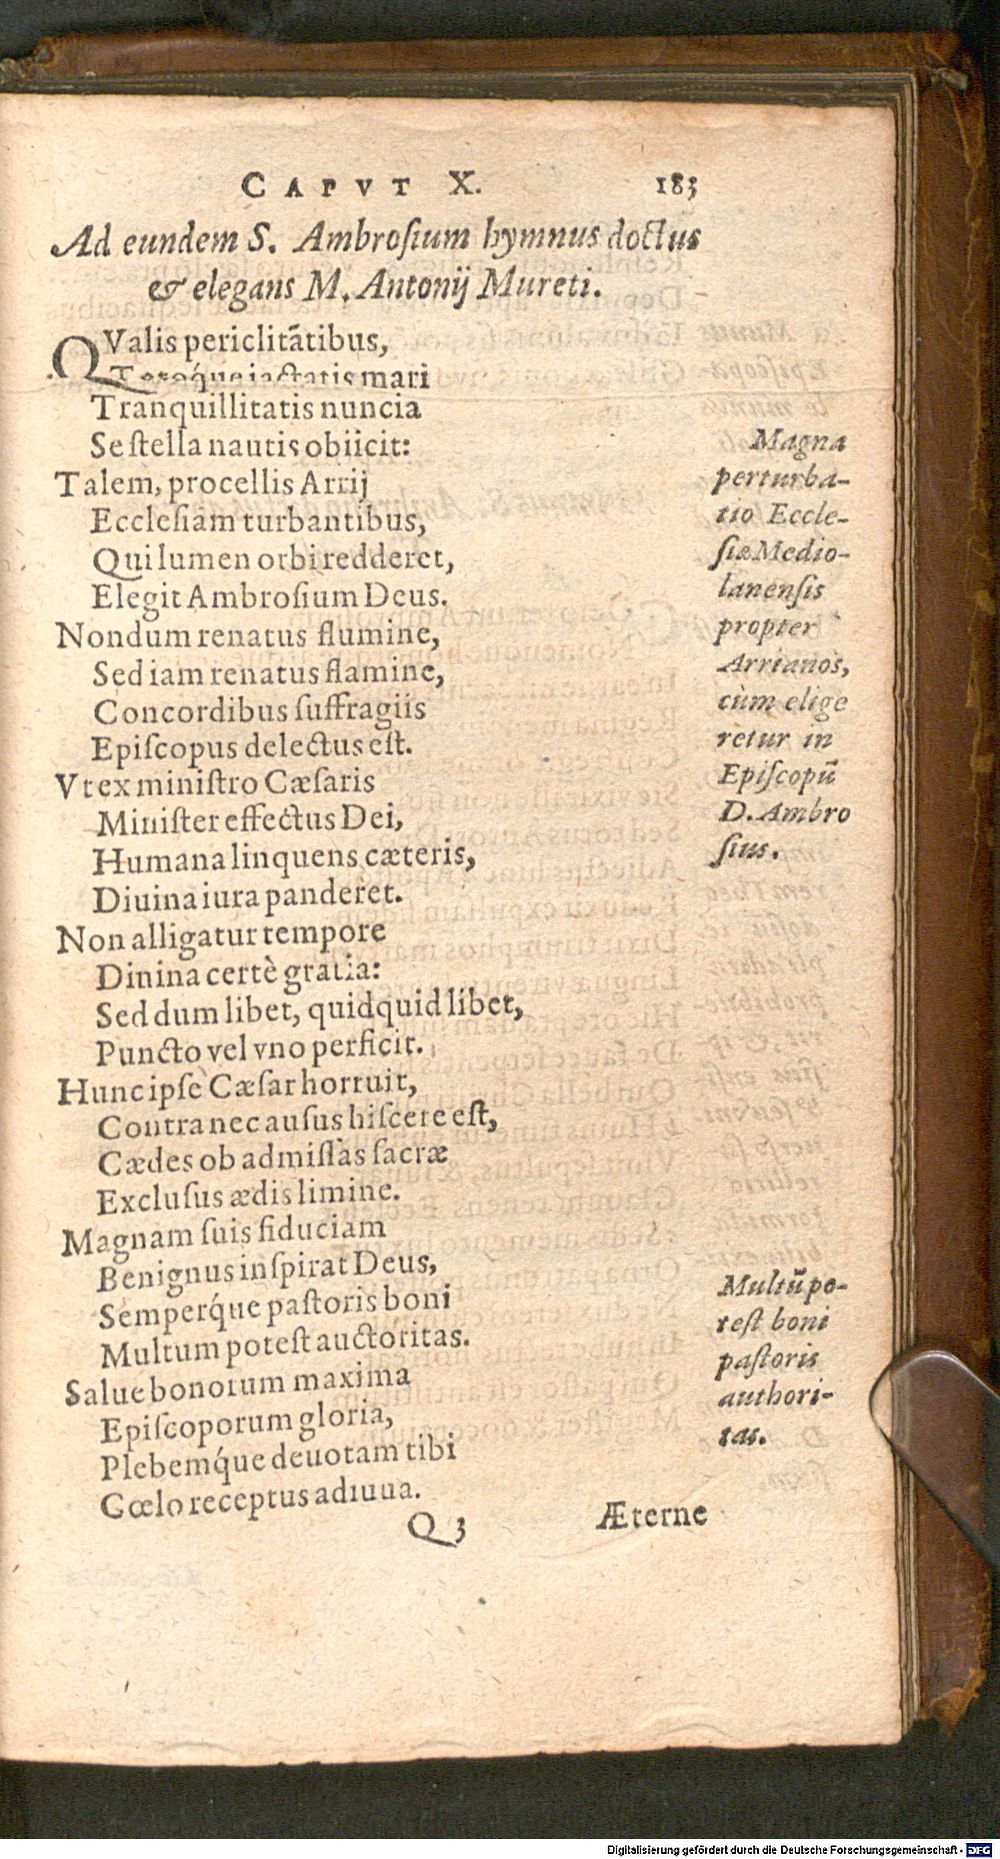 CAPVT X. 183
Ad eundem S. Ambroſium hymnus doctus
& elegans M. Antonij Mureti.
QValis periclitãtibus,
Totóque iactatis mari
Tranquillitatis nuncia
Se ſtella nautis obiicit:
Talem, procellis Arrij
Eccleſiam turbantibus,
Qui lumen orbi redderet,
Elegit Ambroſium Deus.
Nondum renatus flumine,
Sed iam renatus flamine,
Concordibus ſuffragiis
Epiſcopus delectus eſt.
Vt ex miniſtro Cæſaris
Miniſter effectus Dei,
Humana linquens cæteris,
Diuina iura panderet.
Non alligatur tempore
Diuina certè gratia:
Sed dum libet, quidquid libet,
Puncto vel vno perficit.
Hunc ipſe Cæſar horruit,
Contra nec auſus hiſcere eſt,
Cædes ob admiſſas ſacræ
Excluſus ædis limine.
Magnam ſuis fiduciam
Benignus inſpirat Deus,
Sempérque paſtoris boni
Multum poteſt auctoritas.
Salue bonorum maxima
Epiſcoporum gloria,
Plebémque deuotam tibi
Cœlo receptus adiuua.
Magna
perturba-
tio Eccle-
ſiæ Medio-
lanenſis
propter
Arrianos,
cùm elige
retur in
Epiſcopũ
D. Ambro
ſius.
Multũ po-
teſt boni
paſtoris
authori-
tas.
Q 3 Æterne
Digitalisierung gefördert durch die Deutsche Forschungsgemeinschaft - DFG